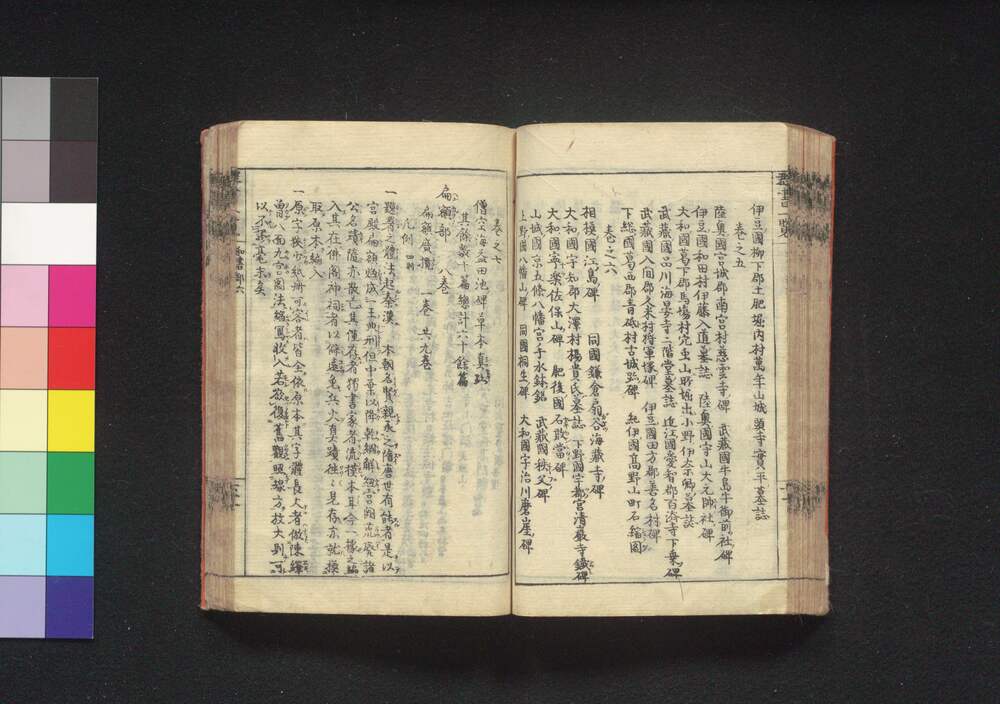 伊豆國柳下郡土肥堀内村萬年山城願寺實平墓誌
巻之五
陸奥國宮城郡南宮村慈雲寺碑 武藏國牛島牛御前社碑
伊豆國和田村伊藤入道墓誌 陸奥國宇山大元帥社碑
大和國葛下郡馬場村穴虫山所堀出小野伊奈卿墓誌
武藏國品川海晏寺二階堂墓誌 近江國愛智郡百済寺下乗碑
武藏國入間郡久米村将軍塚碑 伊豆國田方郡善名村碑
下総國葛西郡青砥村古城跡碑 紀伊國高野山町石縮圖
巻之六
相模國江島碑 同國鎌倉扇谷海藏寺碑
大和國宇知郡大澤村楊貴氏墓誌 下野國宇都宮清巌寺鐵碑
大和國寧楽佐保山碑 肥後國石敢當碑
山城國京五條八幡宮手水鉢銘 武藏國秩父碑
上野國八幡山碑 同國桐生碑 大和國宇治川磨崖碑
巻之七
僧空海益田池碑草本真跡
其餘数十篇總計六十餘篇
扁額部 八巻
扁額廣攗 一巻 共九巻
凡例 四則
一題署之體法起秦漢 本朝名賢親承之隋唐世有能者是以
宮殿扁額煥成一王典刑但中葉以降乾綱解紐宮闕荒廢諸
公名蹟隨亦散亡其僅存者獨書家者流摸本耳今一據之編
入其在佛閣神祠者以僻遠免兵火真蹟往々見存亦就摸
取原本編入
一原字狭少紙冊可容者皆全依原本其字體長大者倣陳繹
曾八面九宮圖法縮寫收入若欲復舊觀照樣方放大則可
以不誤毫末矣
和書部六